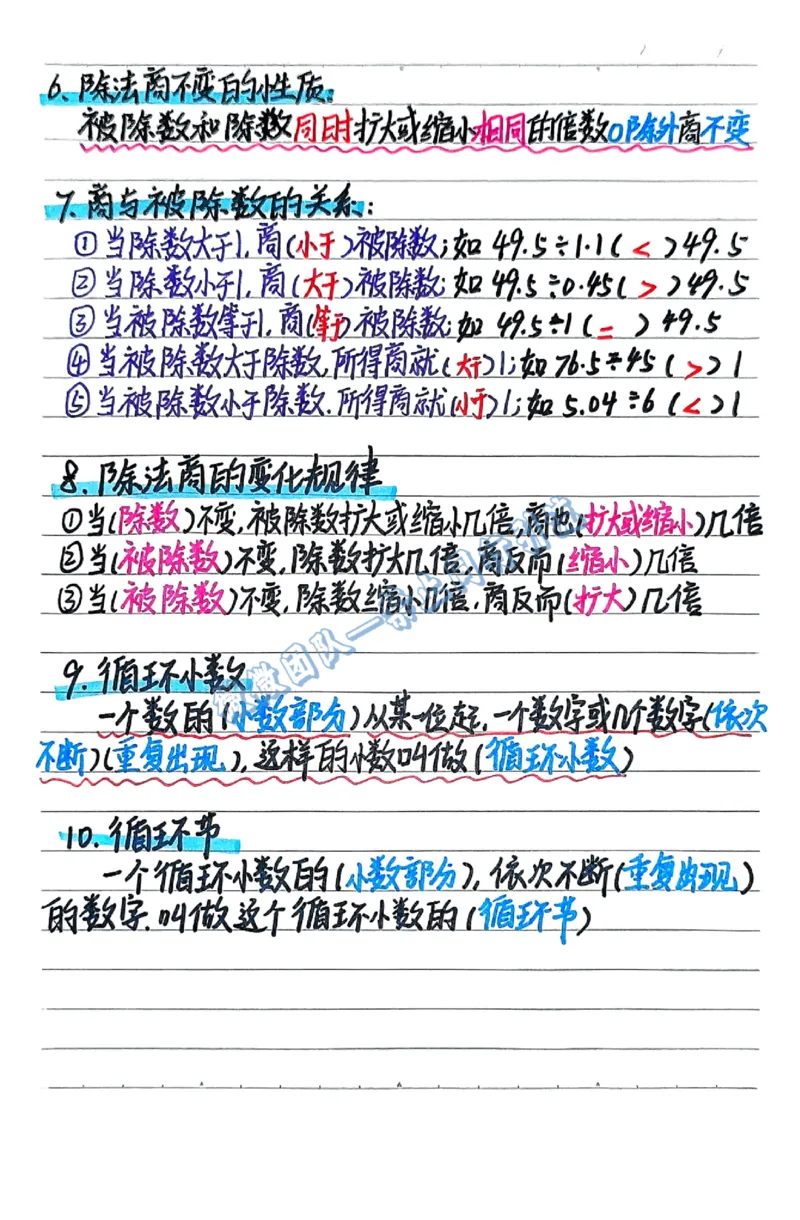 6.除法商不变的性质:
被除数和除数同时扩大或缩小相同的倍数0除外商不变
7.商与被除数的关系:
①当除数大于1,商(小于)被除数;如 49.5÷1.1(<)49.5
②当除数小于1,商(大于)被除数;如 49.5÷0.45(>)49.5
③当被除数等于1,商(等于)被除数;如 49.5÷1(=)49.5
④当被除数大于除数,所得商就(大于)1;如76.5÷45(>)1
⑤当被除数小于除数.所得商就(小于)1;如 5.04÷6(<)1
8.除法商的变化规律
①当(除数)不变,被除数扩大或缩小几倍,商也(扩大或缩小)几倍
②当(被除数)不变,除数扩大几倍,商反而(缩小)几倍
③当(被除数)不变,除数缩小几倍,商反而(扩大)几倍
9.循环小数
一个数的(小数部分)从某一位起,一个数字或几个数字(依次
不断)(重复出现),这样的小数叫做(循环小数)
10.循环节
一个循环小数的(小数部分),依次不断(重复出现)
的数字.叫做这个循环小数的(循环节)